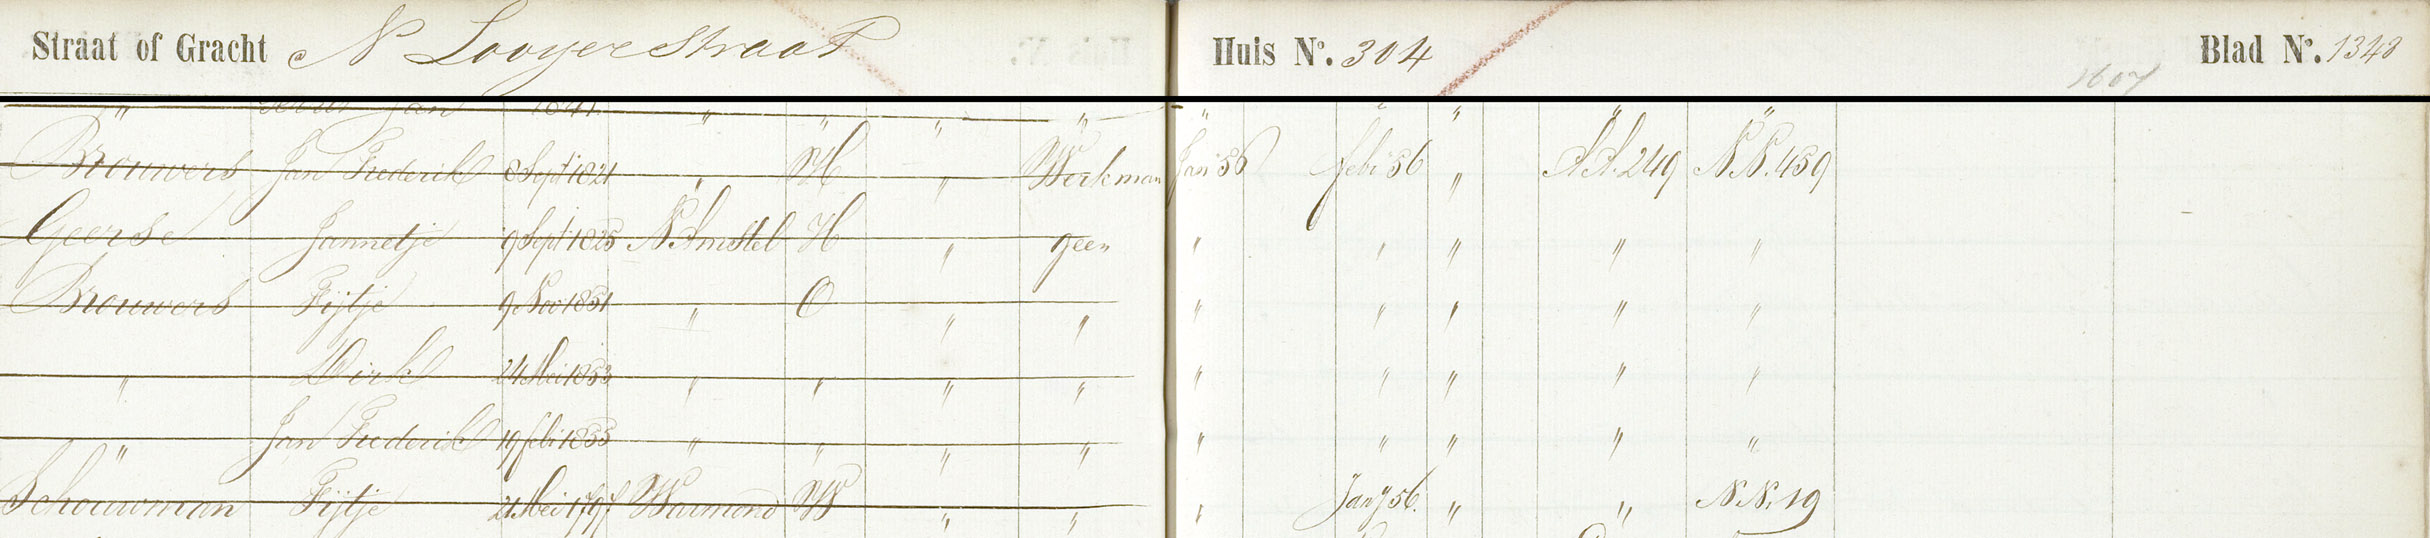 Straat of Gracht N Looyerstraat Huis No. 304 Blad No. 1348
1607
" Jan 1841 " " " " " " " " "
Brouwers Jan Frederik 8 Sept 1821 " H " Werkman Jan 56 Feb 56 " AA.249 NN.459
Geerse Jannetje 9 Sept 1825 N Amstel H " geen " " " " "
Brouwers Fijtje 9 Nov 1851 " O " " " " " " "
" Dirk 24 Mei 1853 " " " " " " " " "
" Jan Frederik 19 feb 1855 " " " " " " " " "
Schouwman Fijtje 21 Mei 1797 Warmond W " " " Jany 56. " " NN.19